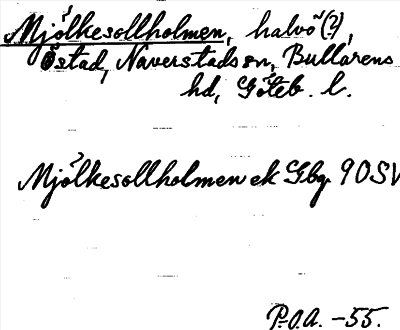 Mjölkesollholmen, halvö(?),
Östad, Naverstads sn, Bullarens
hd, Göteb. l.
Mjölkesollholmen ek Gbg. 90SV
P.O.A. -55.